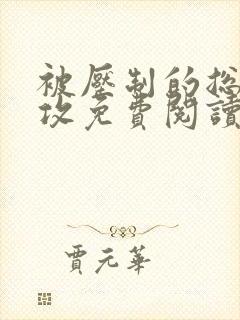 被壓制的总
攻免費閱讀
賈元華